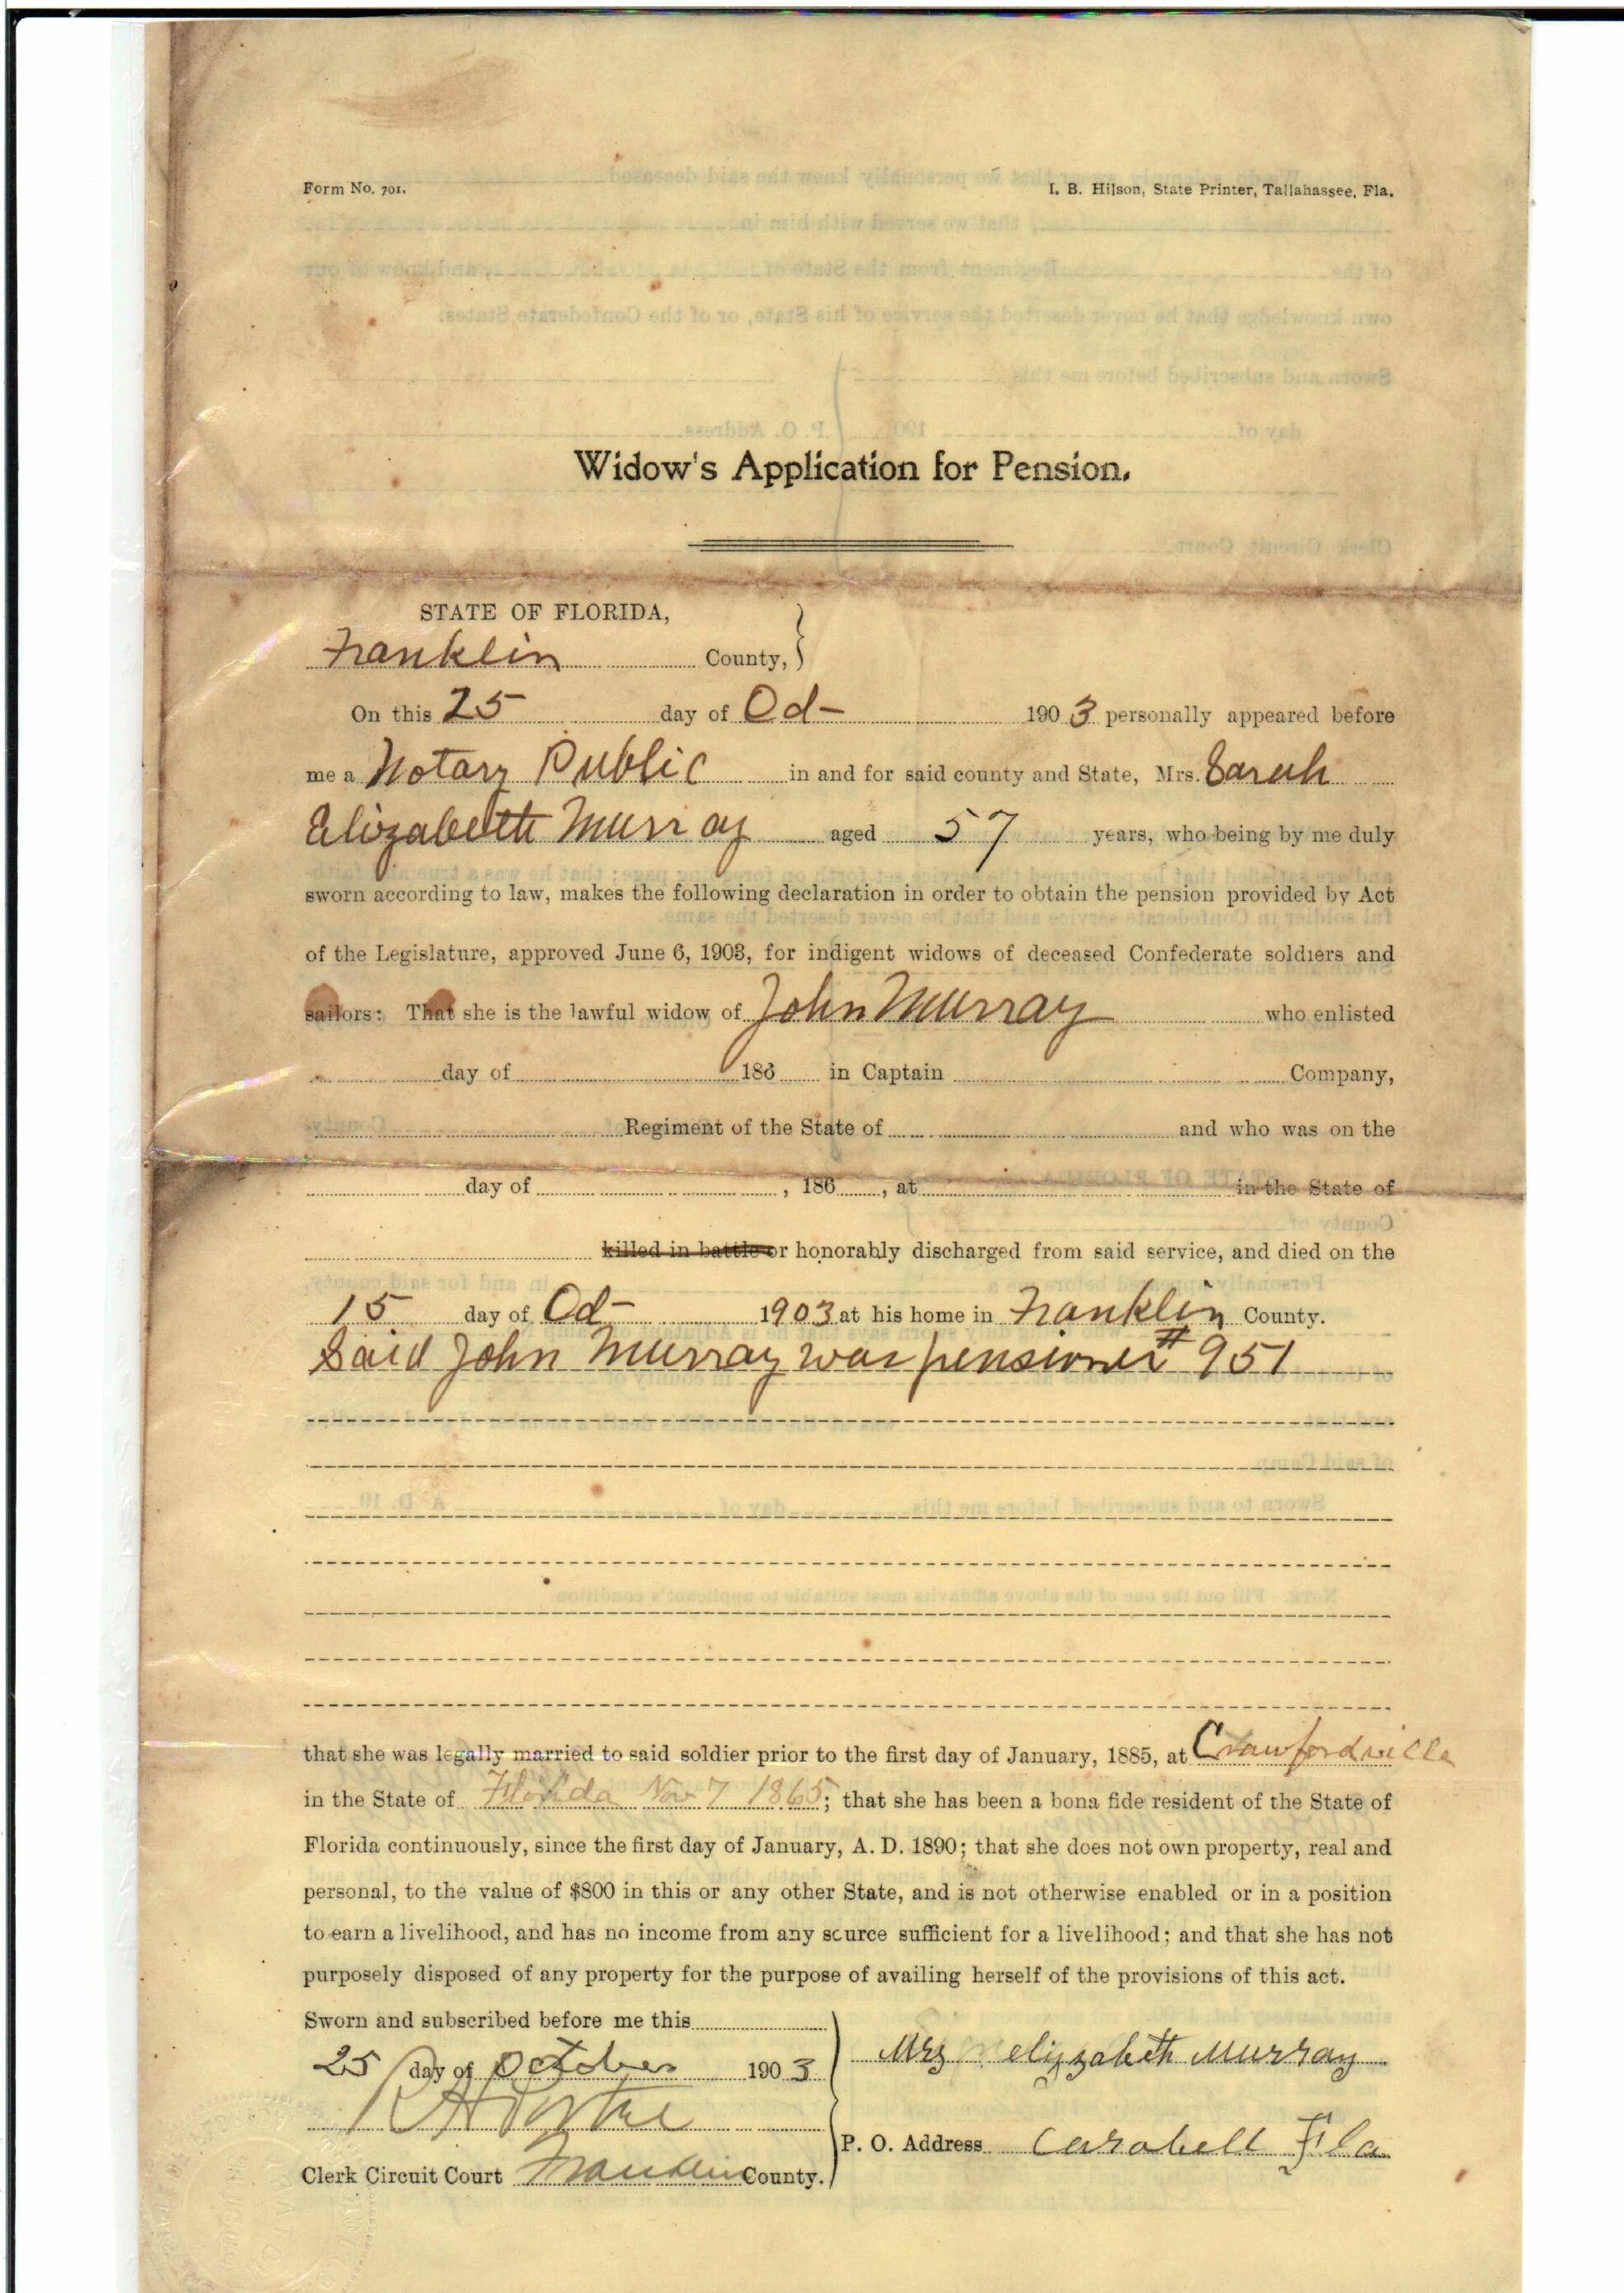 Form No. 701. I. B. Hilson, State Printer, Tallahassee, Fla.
Widow's Application for Pension.
STATE OF FLORIDA,
Franklin County,
On this 25 day of Oct- 1903 personally appeared before
me a Notary Public in and for said county and State, Mrs. Sarah
Elizabeth Murray aged 57 years, who being by me duly
sworn according to law, makes the following declaration in order to obtain the pension provided by Act
of the Legislature, approved June 6, 1903, for indigent widows of deceased Confederate soldiers and
sailors: That she is the lawful widow of John Murray who enlisted
day of 186 in Captain Company,
Regiment of the State of and who was on the
day of , 186 , at in the State of
killed in battle or honorably discharged from said service, and died on the
15 day of Oct- 1903 at his home in Franklin County.
Said John Murray was pensioner # 951
that she was legally married to said soldier prior to the first day of January, 1885, at Crawfordville
in the State of Florida Nov 7 1865; that she has been a bona fide resident of the State of
Florida continuously, since the first day of January, A. D. 1890; that she does not own property, real and
personal, to the value of $800 in this or any other State, and is not otherwise enabled or in a position
to earn a livelihood, and has no income from any source sufficient for a livelihood; and that she has not
purposely disposed of any property for the purpose of availing herself of the provisions of this act.
Sworn and subscribed before me this
25 day of October 1903
Mrs elizabeth Murray
R H Porter
P. O. Address Carabell Fla
Clerk Circuit Court Franklin County.